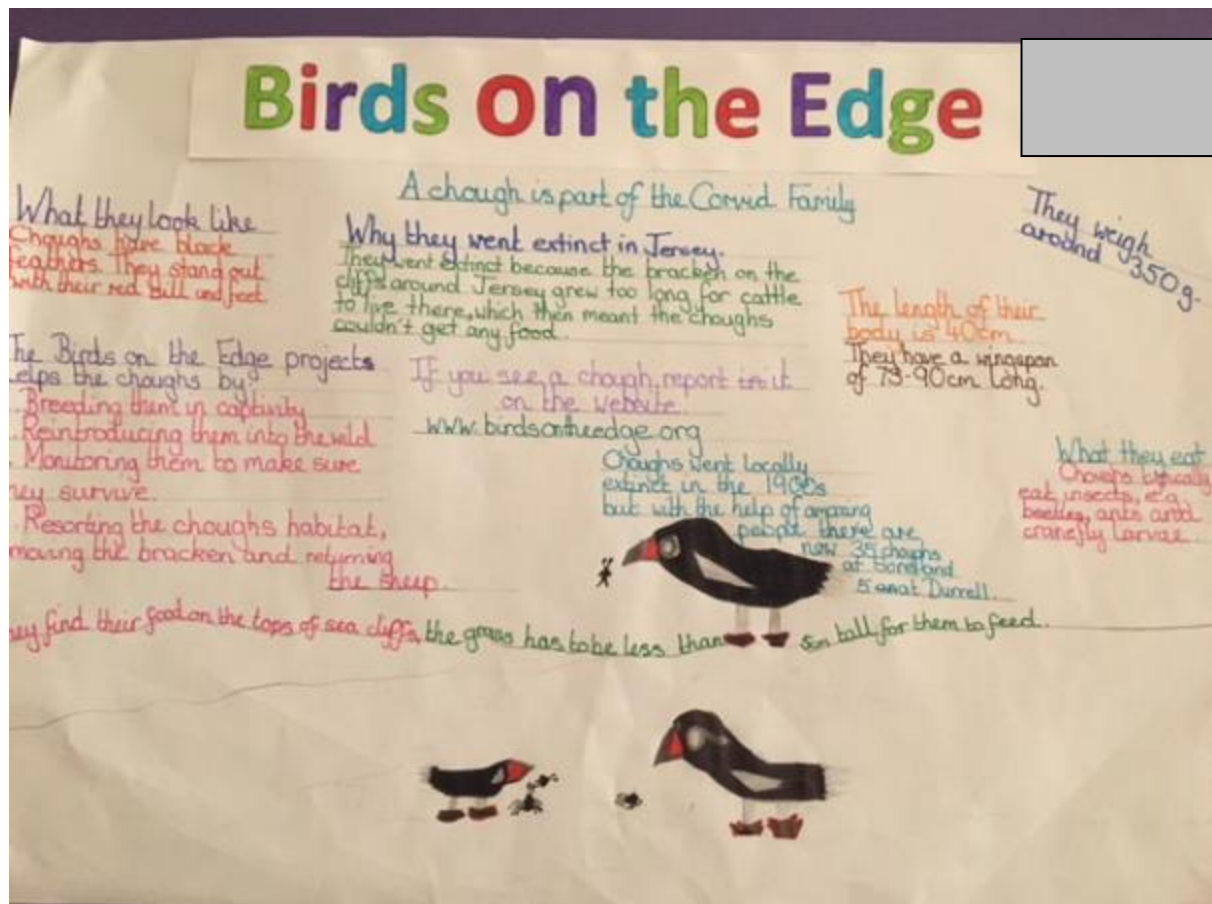 Birds on the Edge
A chough is part of the Corvid Family
They weigh
around 350g.
What they look like
Choughs have black
feathers. They stand out
with their red bill and feet
Why they went extinct in Jersey.
They went extinct because the bracken on the
cliffs around Jersey grew too long for cattle
to live there, which then meant the choughs
couldn't get any food.
The length of their
body is 40cm.
They have a wingspan
of 73-90cm long.
he Birds on the Edge projects
elps the choughs by:
. Breeding them in captivity
. Reintroducing them into the wild
. Monitoring them to make sure
hey survive.
. Resorting the choughs habitat,
moving the bracken and returning
the sheep.
If you see a chough, report it
on the website
www.birdsontheedge.org
Choughs went locally
extinct in the 1900s
but with the help of amazing
people there are
now 35 choughs
at Sorel and
5 at Durrell.
What they eat
Choughs typically
eat insects, e.g.
beetles, ants and
cranefly larvae
hey find their food on the tops of sea cliffs, the grass has to be less than 5cm tall for them to feed.